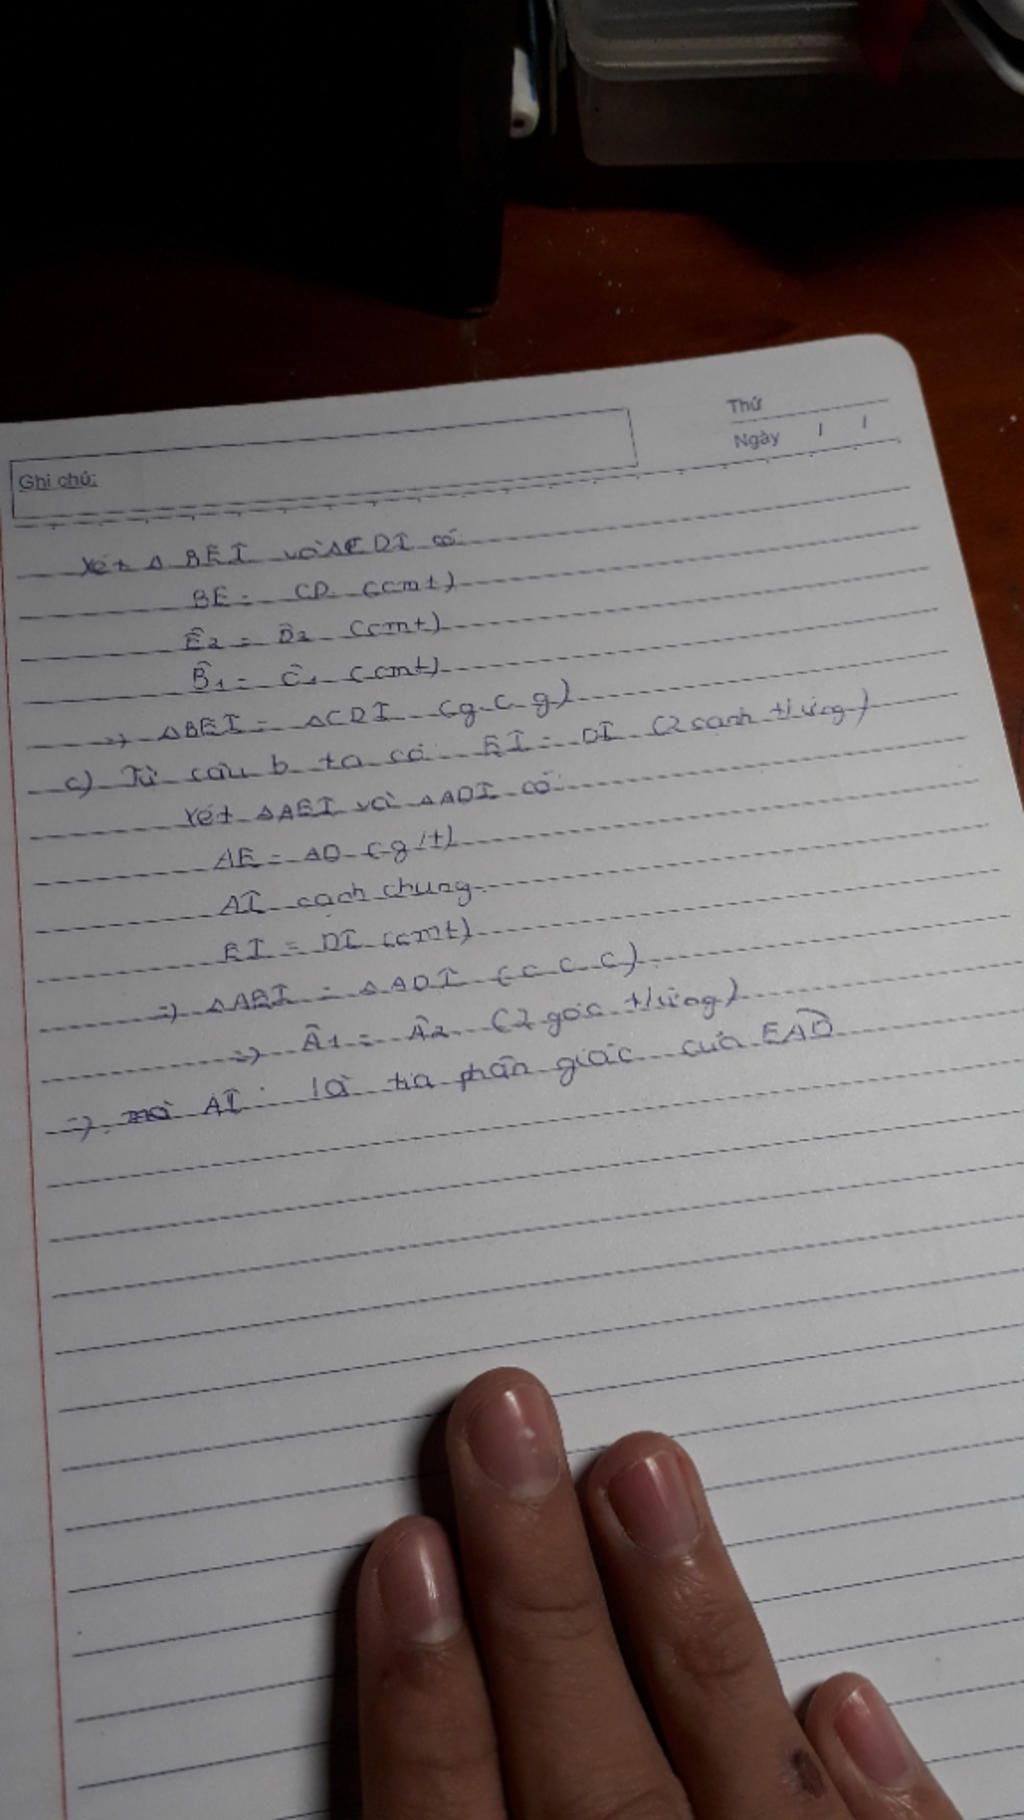 Thứ
Ngày / /
Ghi chú:
Xét Δ BEI và Δ CDI có:
BE = CD (cmt)
Ê2 = D̂2 (cmt)
B̂1 = Ĉ1 (cmt)
=> ΔBEI = ΔCDI (g.c.g)
c) Từ câu b ta có: EI = DI (2 cạnh t/ứng)
Xét ΔAEI và ΔADI có:
AE = AD (g/t)
AI cạnh chung
EI = DI (cmt)
=> ΔAEI = ΔADI (c.c.c)
=> Â1 = Â2 (2 góc t/ứng)
=> AI là tia phân giác của EAD